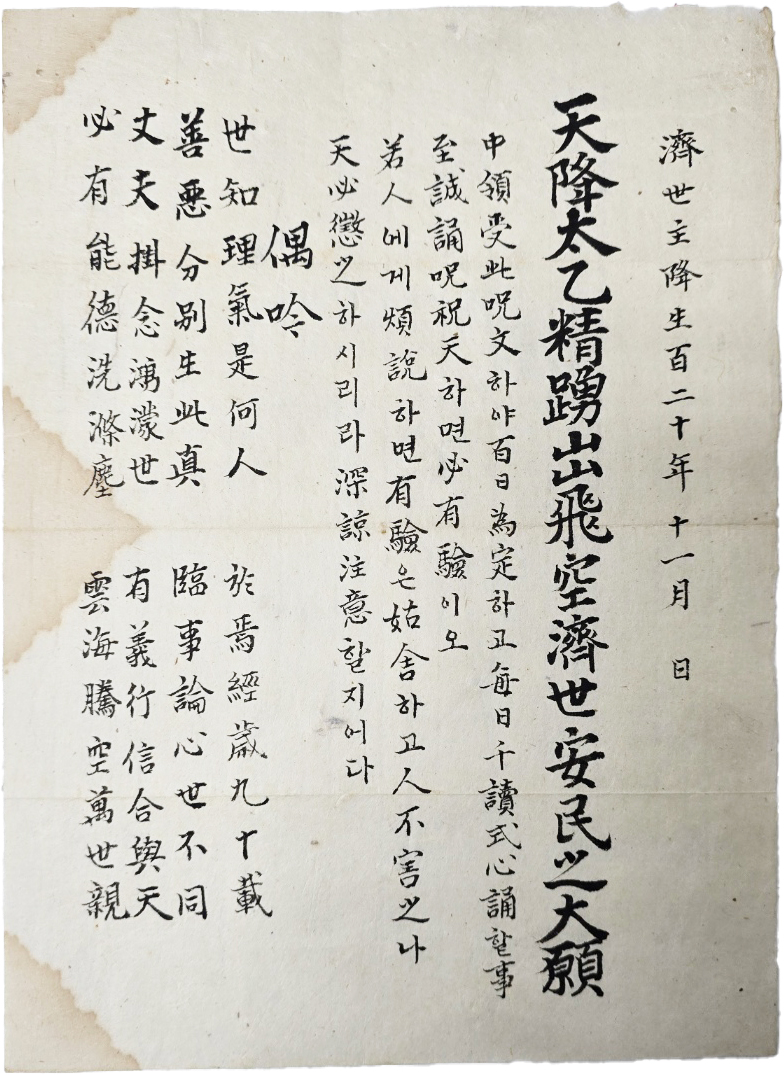 濟世主降生百二十年十一月 日
天降太乙精踴山飛空濟世安民之大願
申領受此呪文하야百日為定하고每日千讀式心誦할事
至誠誦呪祝天하면必有驗이오
若人에게煩說하면有驗은姑舍하고人不害之나
天必懲之하시리라深諒注意할지어다
偶吟
世知理氣是何人 於焉經歲九十載
善惡分別生此真 臨事論心世不同
丈夫掛念鴻濛世 有義行信合與天
必有能德洗滌塵 雲海騰空萬世親